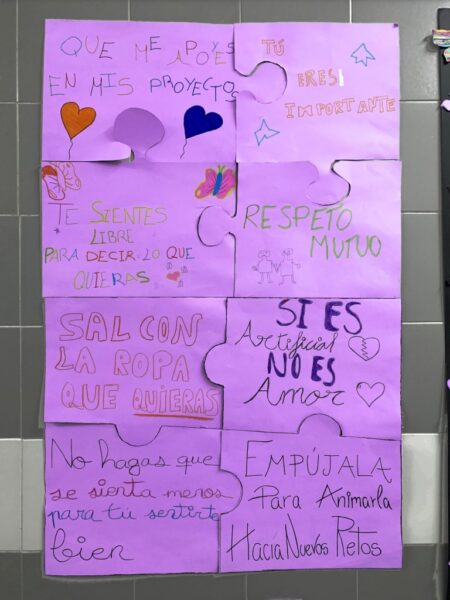 QUE ME APOYES
EN MIS PROYECTOS
TÚ
ERES
IMPORTANTE
TE SIENTES
LIBRE
PARA DECIR LO QUE
QUIERAS
RESPETO
MUTUO
SAL CON
LA ROPA
QUE QUIERAS
SI ES
Artificial
NO ES
Amor
No hagas que
se sienta menos
para tú sentirte
bien
EMPÚJALA
Para Animarla
Hacia Nuevos Retos